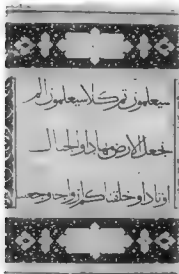 سيعلمون ثم كلا سيعلمون الم
نجعل الارض مهادا والجبال
اوتادا وخلقناكم ازواجا وجعلنا